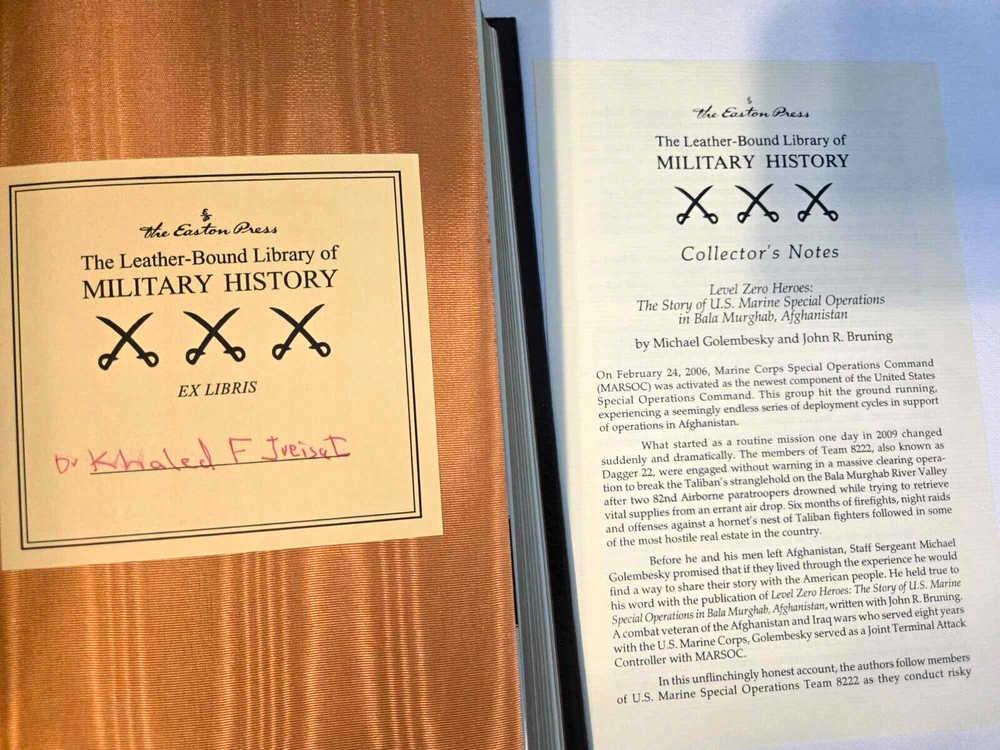 the Easton Press
The Leather-Bound Library of
MILITARY HISTORY
EX LIBRIS
Dr Khaled F Jreisat
the Easton Press
The Leather-Bound Library of
MILITARY HISTORY
Collector's Notes
Level Zero Heroes:
The Story of U.S. Marine Special Operations
in Bala Murghab, Afghanistan
by Michael Golembesky and John R. Bruning
On February 24, 2006, Marine Corps Special Operations Command
(MARSOC) was activated as the newest component of the United States
Special Operations Command. This group hit the ground running,
experiencing a seemingly endless series of deployment cycles in support
of operations in Afghanistan.
What started as a routine mission one day in 2009 changed
suddenly and dramatically. The members of Team 8222, also known as
Dagger 22, were engaged without warning in a massive clearing opera-
tion to break the Taliban's stranglehold on the Bala Murghab River Valley
after two 82nd Airborne paratroopers drowned while trying to retrieve
vital supplies from an errant air drop. Six months of firefights, night raids
and offenses against a hornet's nest of Taliban fighters followed in some
of the most hostile real estate in the country.
Before he and his men left Afghanistan, Staff Sergeant Michael
Golembesky promised that if they lived through the experience he would
find a way to share their story with the American people. He held true to
his word with the publication of Level Zero Heroes: The Story of U.S. Marine
Special Operations in Bala Murghab, Afghanistan, written with John R. Bruning.
A combat veteran of the Afghanistan and Iraq wars who served eight years
with the U.S. Marine Corps, Golembesky served as a Joint Terminal Attack
Controller with MARSOC.
In this unflinchingly honest account, the authors follow members
of U.S. Marine Special Operations Team 8222 as they conduct risky